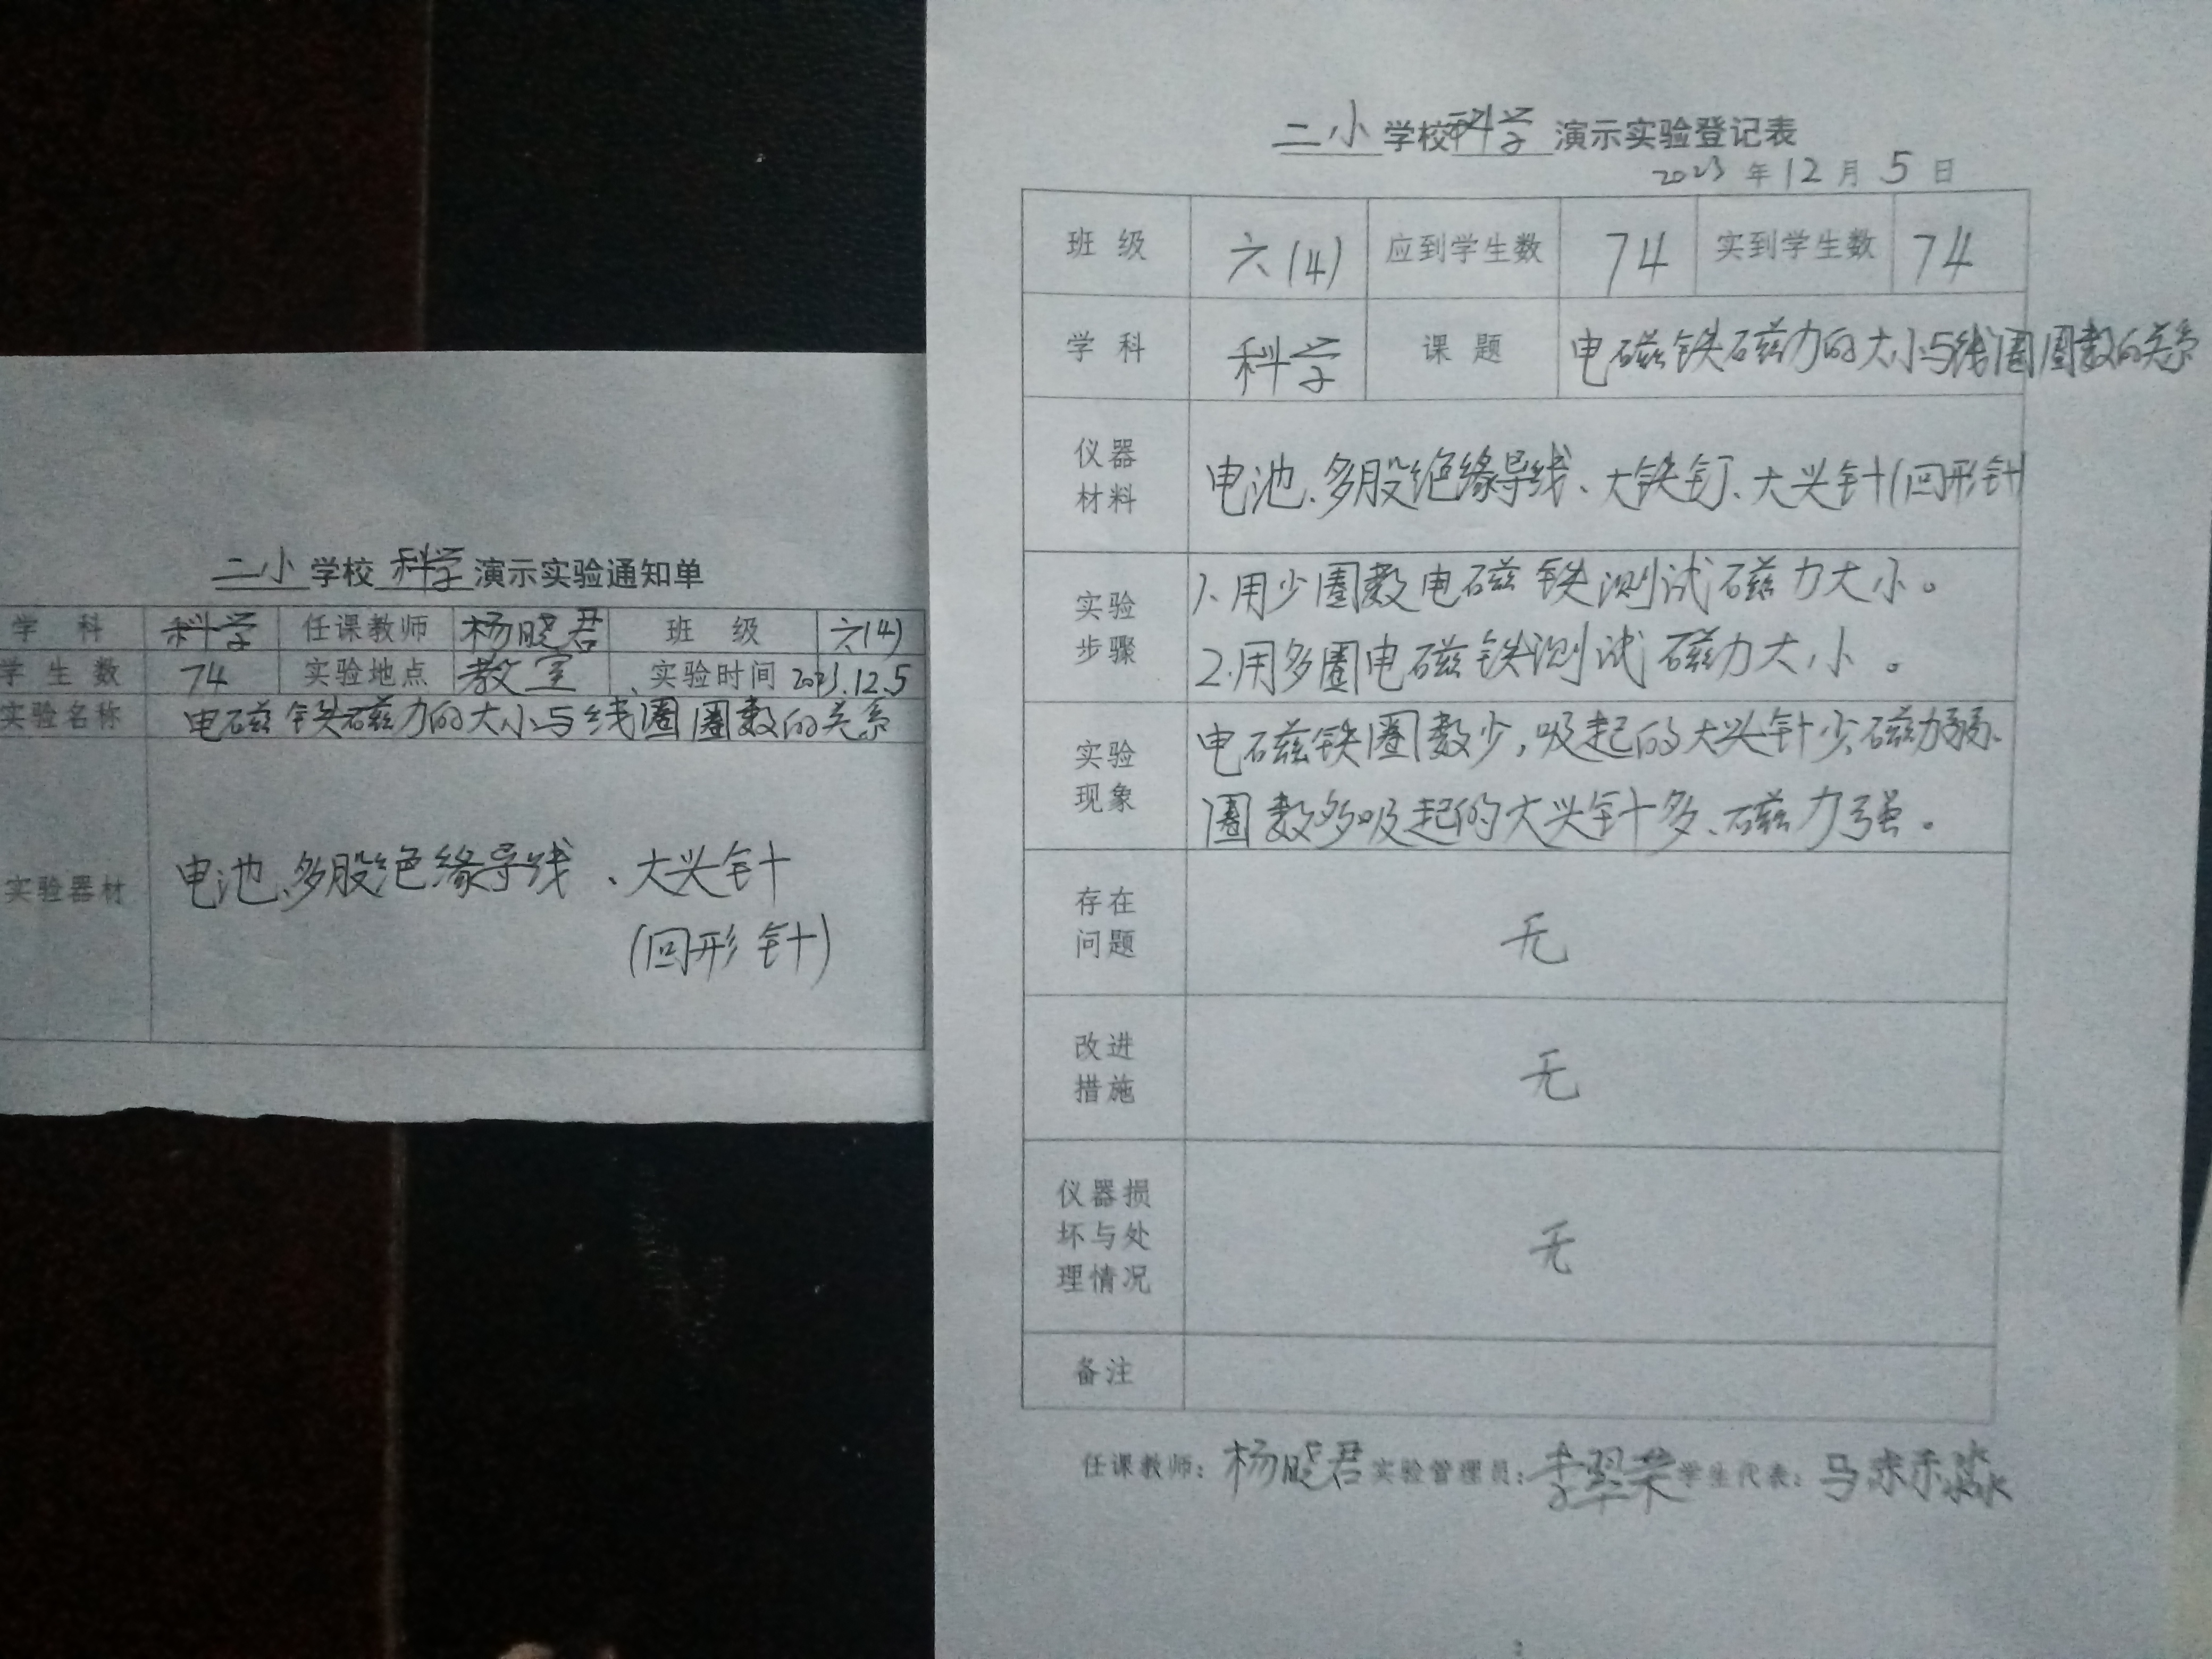 二小学校科学演示实验通知单
学科 科学 任课教师 杨晓君 班级 六(4)
学生数 74 实验地点 教室 实验时间 2023.12.5
实验名称 电磁铁磁力的大小与线圈圈数的关系
实验器材 电池、多股绝缘导线、大头针
(回形针)
二小学校科学演示实验登记表
2023年12月5日
班级 六(4) 应到学生数 74 实到学生数 74
学科 科学 课题 电磁铁磁力的大小与线圈圈数的关系
仪器材料 电池、多股绝缘导线、大铁钉、大头针(回形针
实验步骤 1.用少圈数电磁铁测试磁力大小。
2.用多圈电磁铁测试磁力大小。
实验现象 电磁铁圈数少,吸起的大头针少、磁力弱.
圈数多吸起的大头针多、磁力强。
存在问题 无
改进措施 无
仪器损坏与处理情况 无
备注
任课教师:杨晓君 实验管理员:李翠荣 学生代表:马